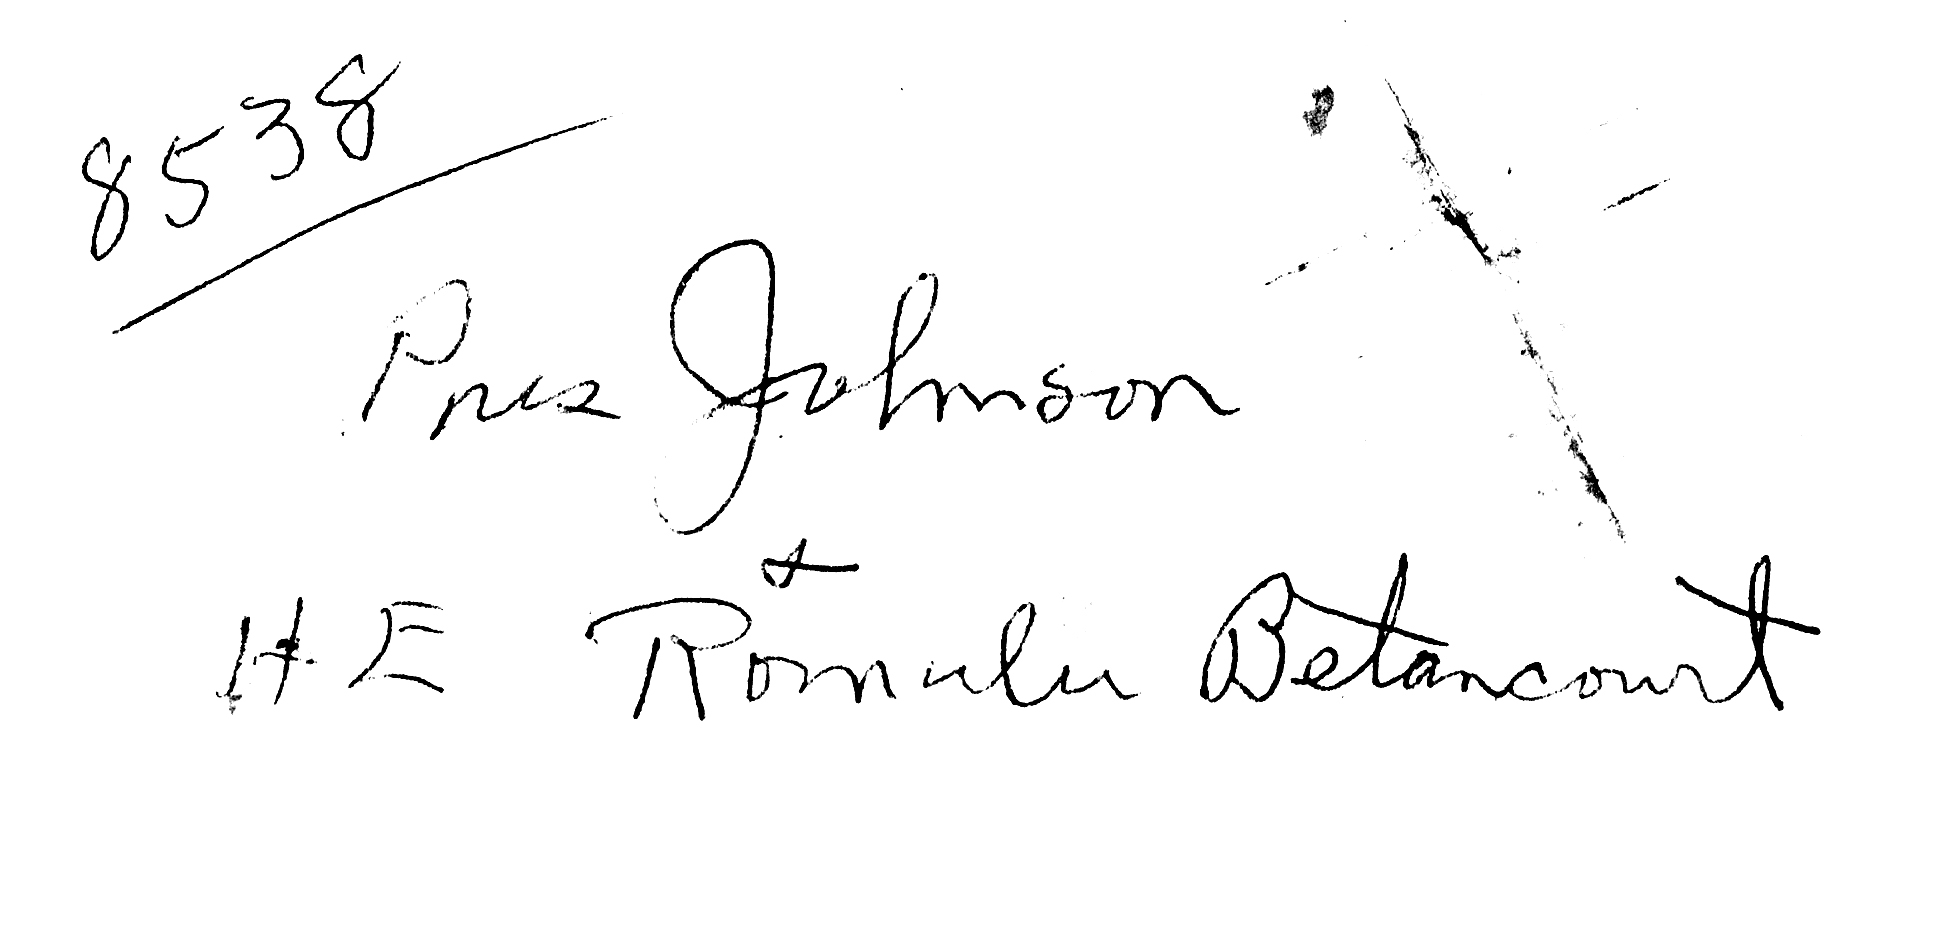 8538
Pres Johnson
&
H E Romulu Betancourt